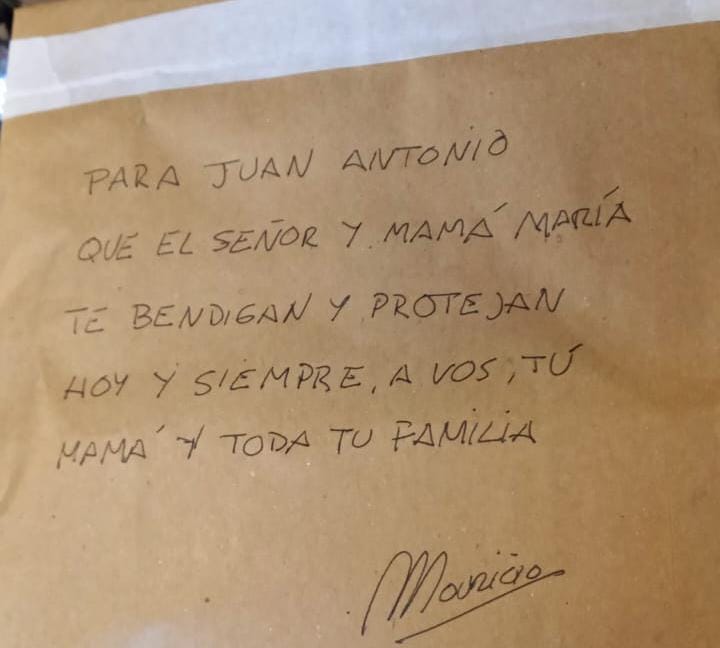 PARA JUAN ANTONIO
QUE EL SEÑOR Y MAMÁ MARÍA
TE BENDIGAN Y PROTEJAN
HOY Y SIEMPRE, A VOS, TÚ
MAMÁ Y TODA TU FAMILIA
Mauricio